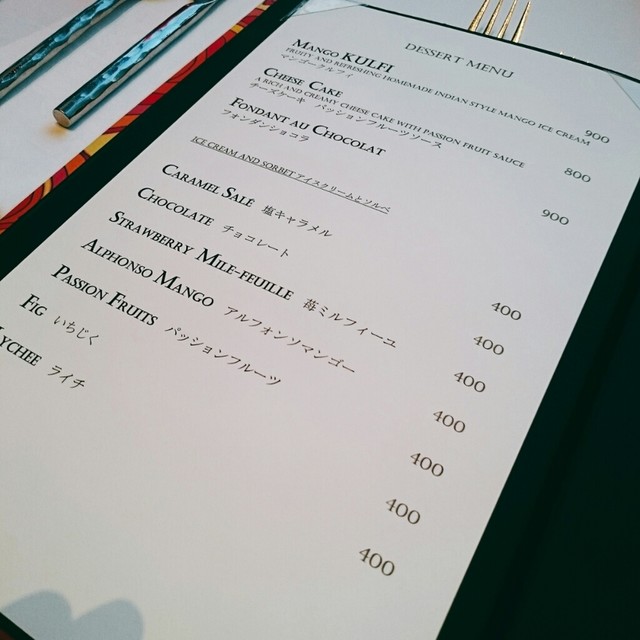 DESSERT MENU
MANGO KULFI
FRUITY AND REFRESHING HOMEMADE INDIAN STYLE MANGO ICE CREAM 900
マンゴークルフィ
CHEESE CAKE
A RICH AND CREAMY CHEESE CAKE WITH PASSION FRUIT SAUCE 800
チーズケーキ パッションフルーツソース
FONDANT AU CHOCOLAT 900
フォンダンショコラ
ICE CREAM AND SORBET アイスクリームとソルベ
CARAMEL SALÉ 塩キャラメル 400
CHOCOLATE チョコレート 400
STRAWBERRY MILE-FEUILLE 苺ミルフィーユ 400
ALPHONSO MANGO アルフォンソマンゴー 400
PASSION FRUITS パッションフルーツ 400
FIG いちじく 400
LYCHEE ライチ 400